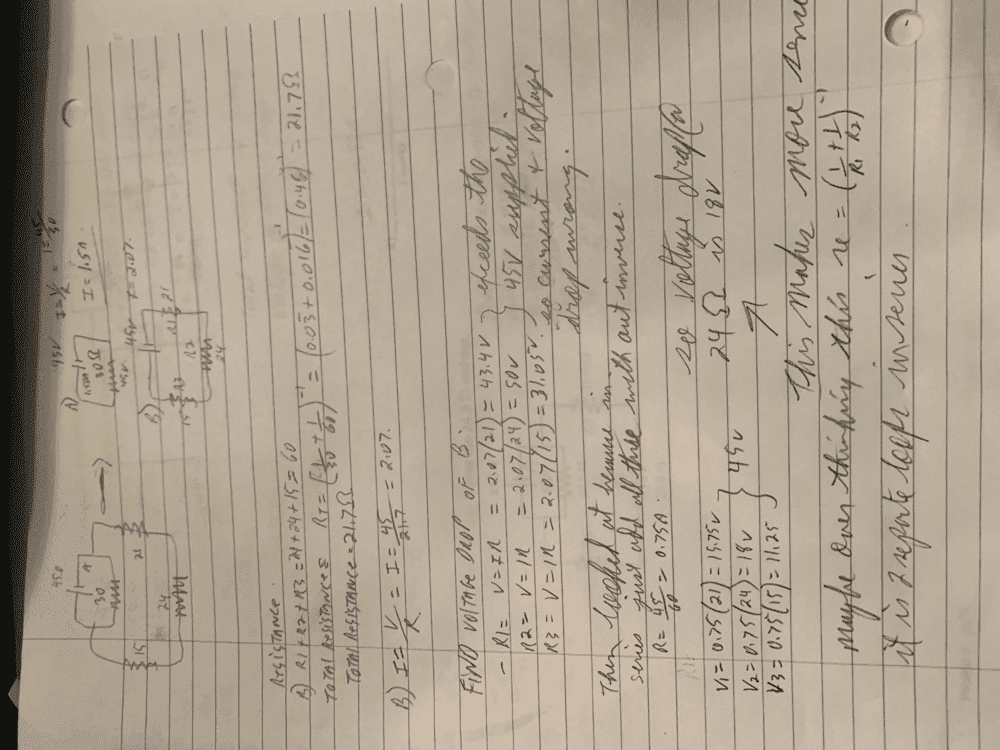 45V I = V/R = I = 45/30
A) I = 1.5A
30Ω
45V
45.0
A
30
21
15
24
B) 45V I = 2.07.
R1 21
R3
15
R2
24
Resistance
B) R1 + R2 + R3 = 21 + 24 + 15 = 60
Total Resistance = RT = (1/30 + 1/60)⁻¹ = (0.03 + 0.016)⁻¹ = (0.46)⁻¹ = 21.7Ω
Total Resistance = 21.7Ω
B) I = V/R = I = 45/21.7 = 2.07.
Find Voltage Drop of B:
- R1 = V = IR = 2.07(21) = 43.4V } exceeds the
R2 = V = IR = 2.07(24) = 50V } 45V supplied.
R3 = V = IR = 2.07(15) = 31.05V. so current & voltage
drop wrong.
Then looked at because in
series just add all three with out inverse.
R = 45/60 = 0.75A.
so voltage drop @
V1 = 0.75(21) = 15.75V
24Ω is 18V
V2 = 0.75(24) = 18V } 45V
V3 = 0.75(15) = 11.25
This makes more sense
maybe over thinking this re = (1/R1 + 1/R2)⁻¹
it is 2 seperate loops in series